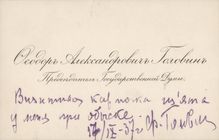 Ѳеодоръ Александровичъ Головинъ
Предсѣдатель Государственной Думы.
Визитная карточка взята
у меня при обыскѣ
17/IX-37г. Ф. Головин